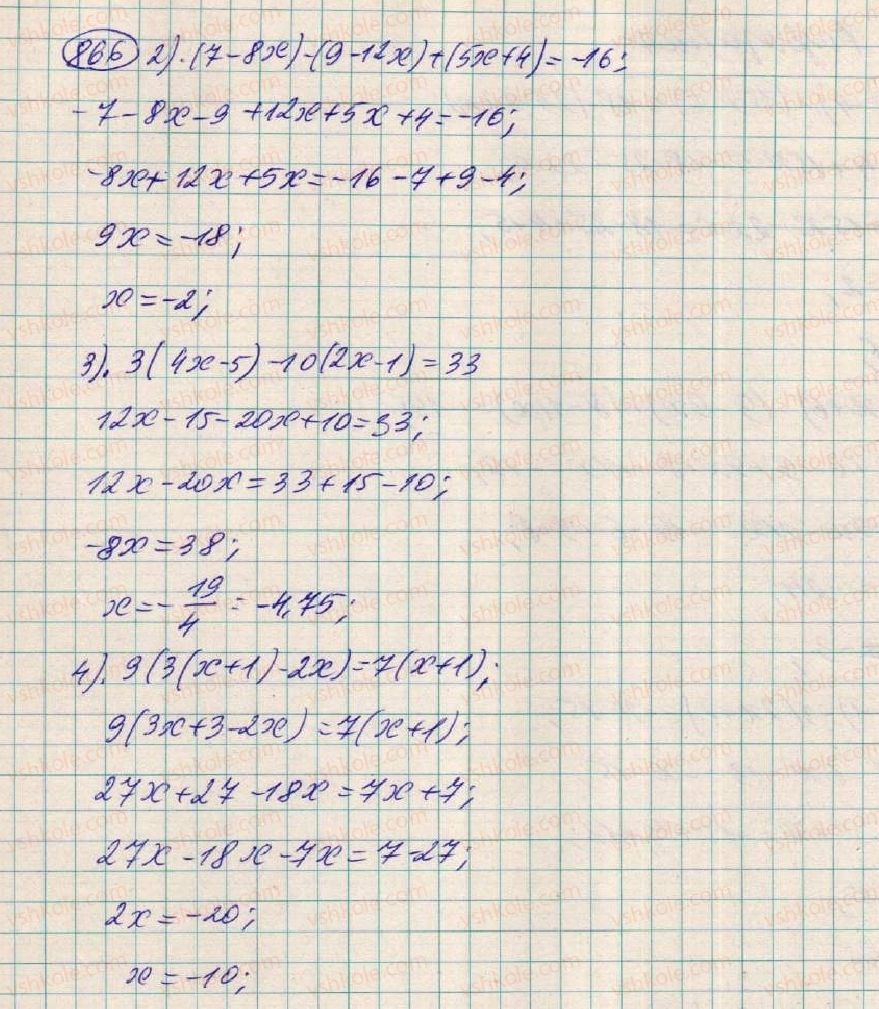 866 2). (7-8x)-(9-12x)+(5x+4)=-16;
-7-8x-9+12x+5x+4=-16;
-8x+12x+5x=-16-7+9-4;
9x=-18;
x=-2;
3). 3(4x-5)-10(2x-1)=33
12x-15-20x+10=33;
12x-20x=33+15-10;
-8x=38;
x=-19/4=-4,75;
4). 9(3(x+1)-2x)=7(x+1);
9(3x+3-2x)=7(x+1);
27x+27-18x=7x+7;
27x-18x-7x=7-27;
2x=-20;
x=-10;
vshkole.com